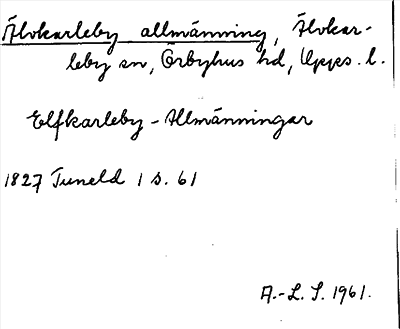 Älvkarleby allmänning, Älvkar-
leby sn, Örbyhus hd, Upps. l.
Elfkarleby-Allmänningar
1827 Tuneld 1 s. 61
A.-L. S. 1961.